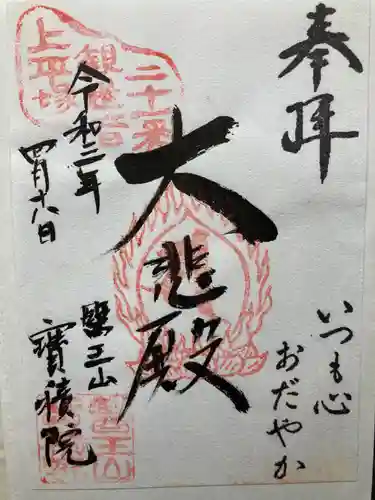 奉拝
いつも心
おだやか
大悲殿
令和二年
四月十八日
醫王山
寳積院
二十一番
観世音
上平塚